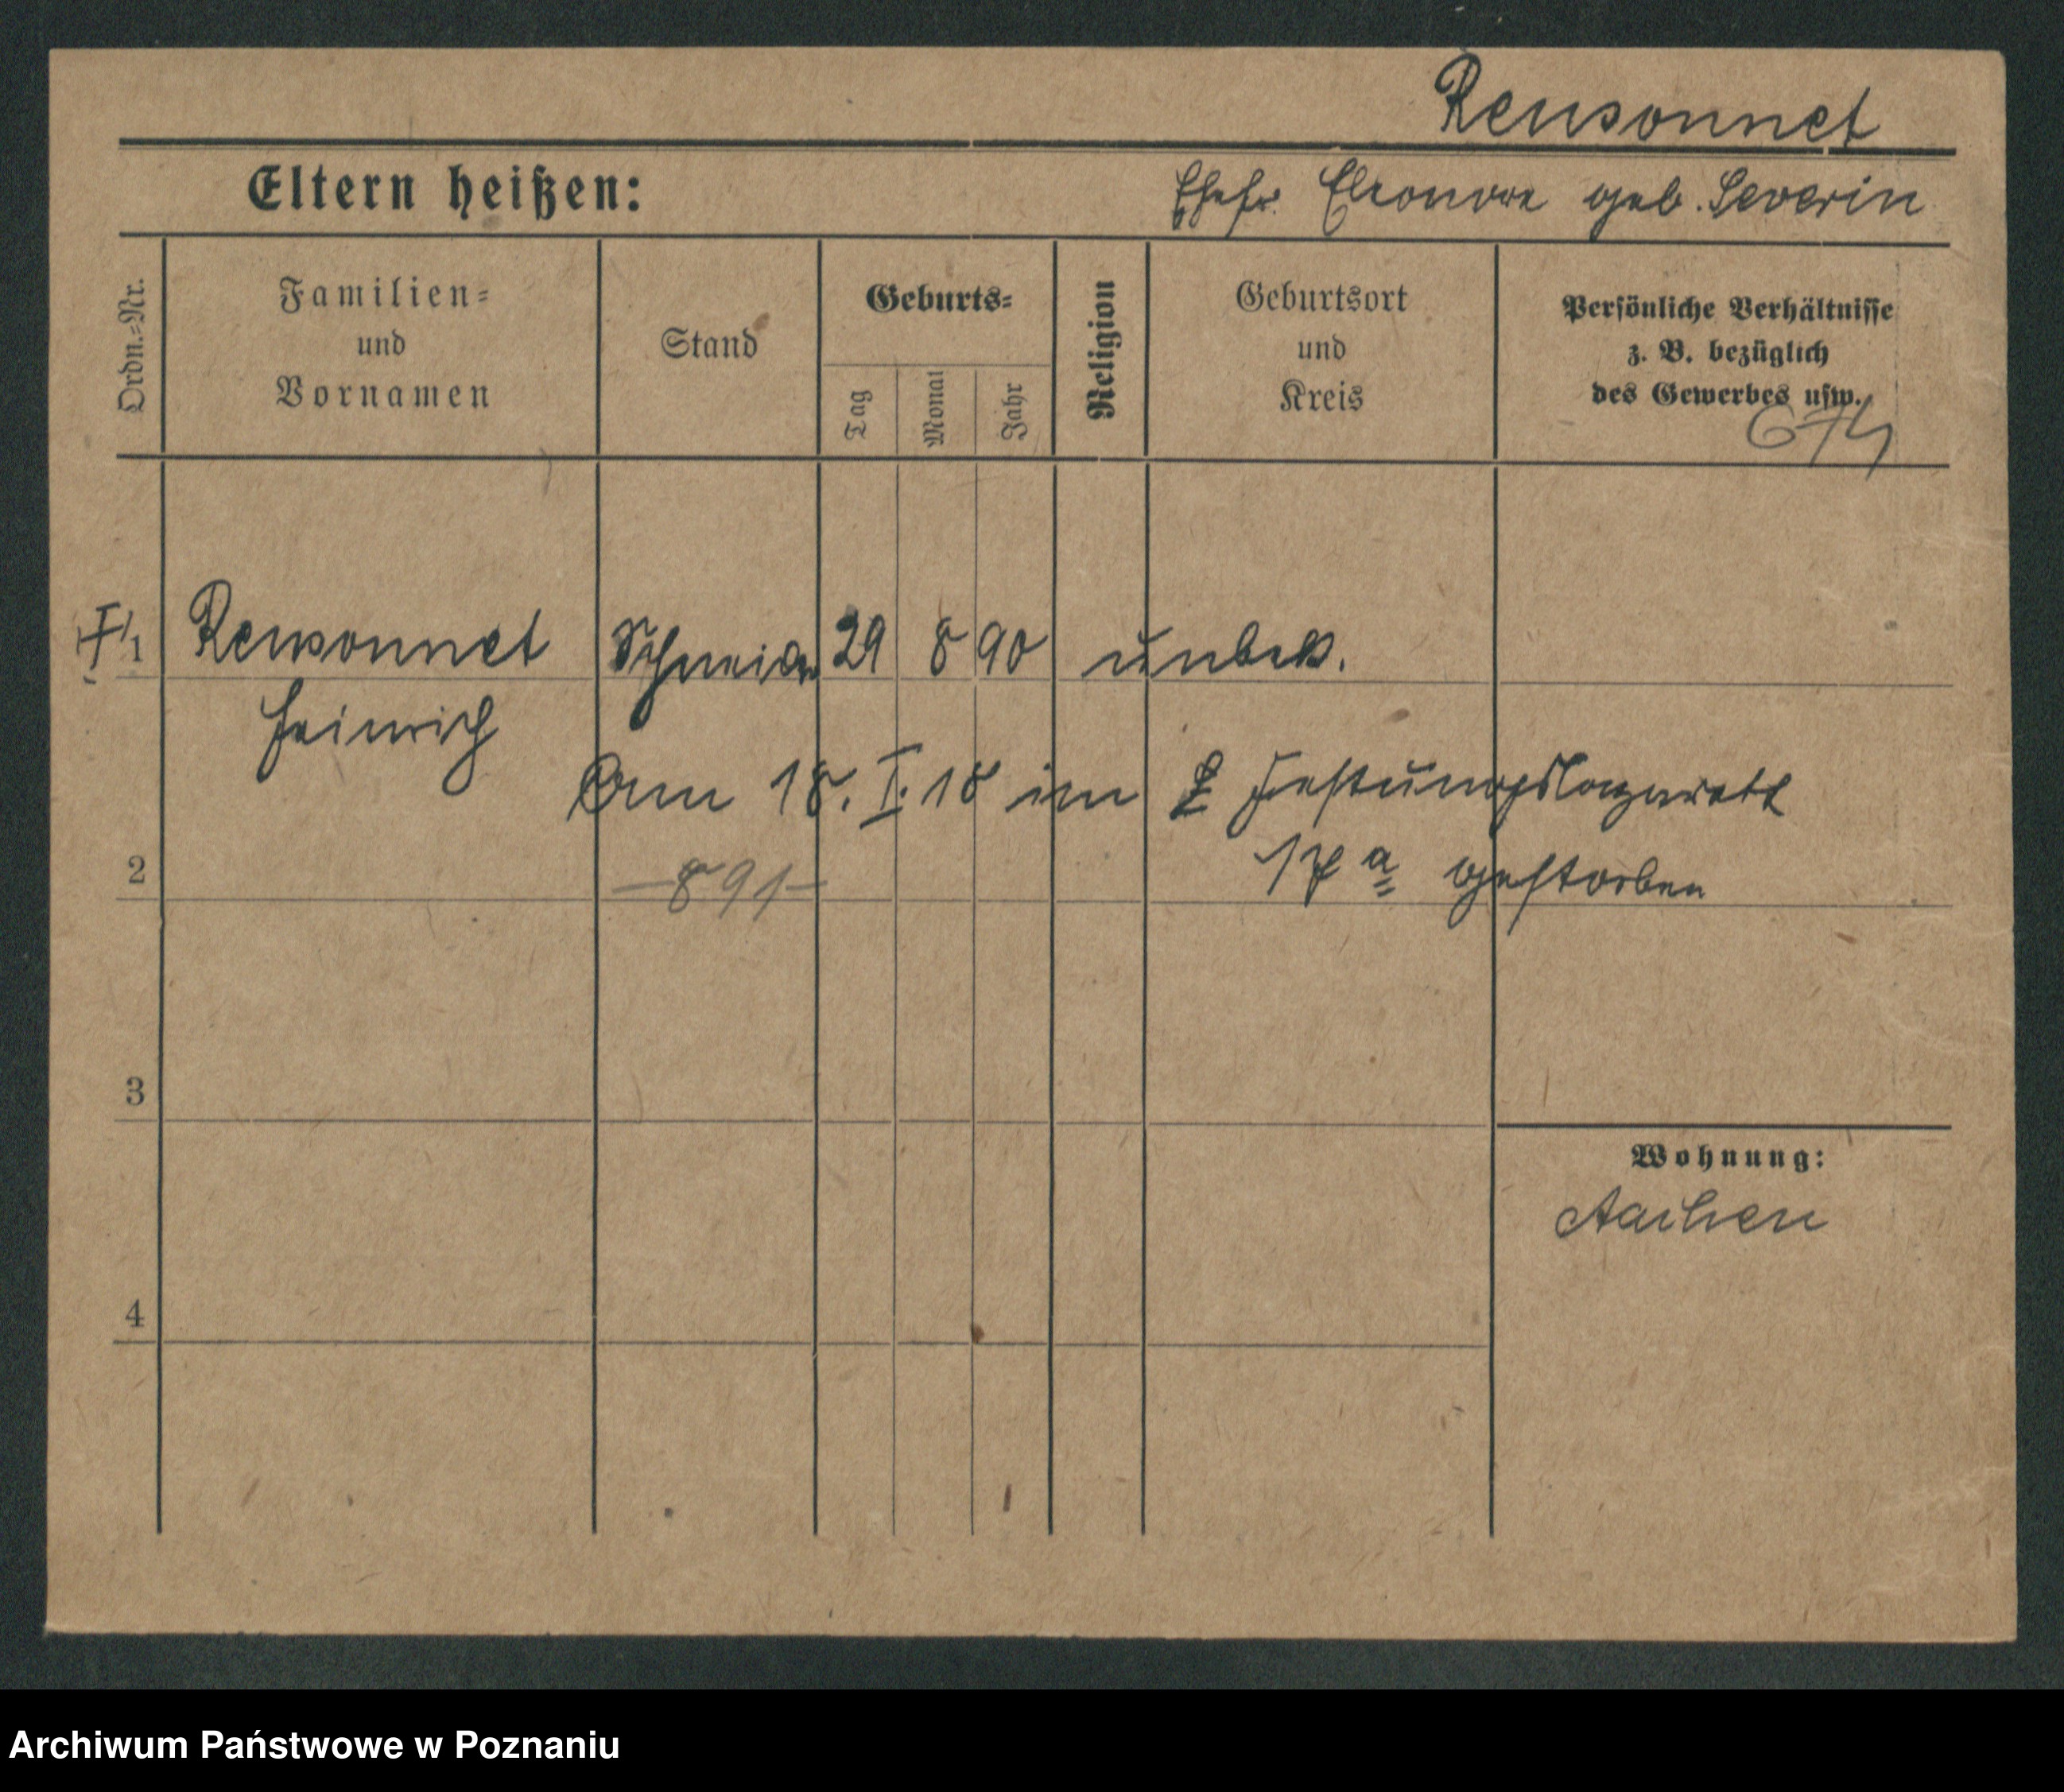 Rensonnet
Eltern heißen:
Ehefr. Eleonore geb. Severin
Ordn.=Nr.
Familien=
und
Vornamen
Stand
Geburts=
Tag
Monat
Jahr
Religion
Geburtsort
und
Kreis
Persönliche Verhältnisse
z. B. bezüglich
des Gewerbes usw.
674
1 Rensonnet Schneider 29 8 90 unbek.
Heinrich
Am 18. I. 18 im Festungslazarett
17 a gestorben
2
-891-
3
Wohnung:
Aachen
4
Archiwum Państwowe w Poznaniu